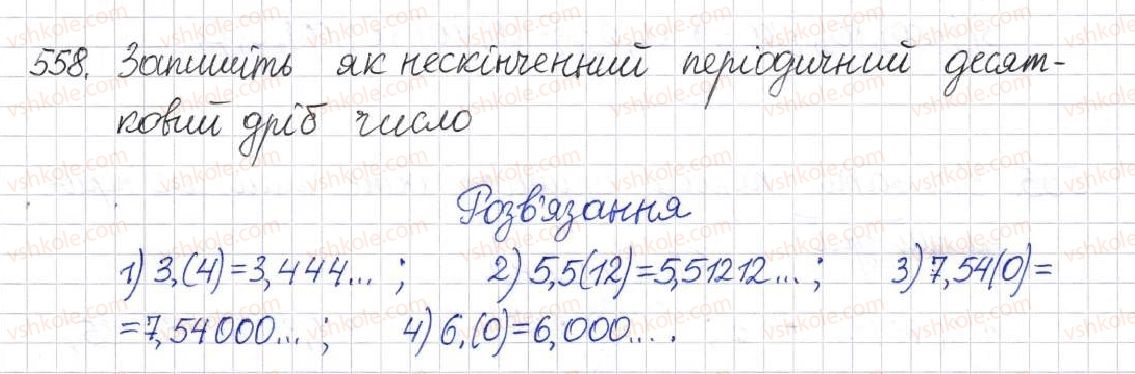 558. Запишіть як нескінченний періодичний десят-
ковий дріб число
Розв'язання
1) 3,(4)=3,444... ; 2) 5,5(12)=5,51212... ; 3) 7,54(0)=
=7,54000... ; 4) 6,(0)=6,000... .